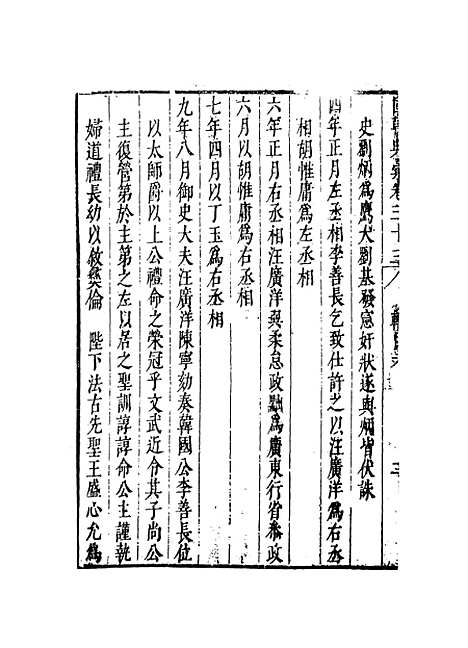 國朝典彙卷三十三
史劉炳為鷹犬劉基發憲奸狀遂與炳皆伏誅
四年正月左丞相李善長乞致仕許之以汪廣洋為右丞
相胡惟庸為左丞相
六年正月右丞相汪廣洋與柔怠政黜為廣東行省叅政
六月以胡惟庸為右丞相
七年四月以丁玉為右丞相
九年八月御史大夫汪廣洋陳寧劾奏韓國公李善長位
以太師爵以上公禮命之榮冠乎文武近令其子尚公
主復管第於主第之左以居之聖訓諄諄命公主謹執
婦道禮長幼以敘彛倫　陛下法古先聖王盛心尤為